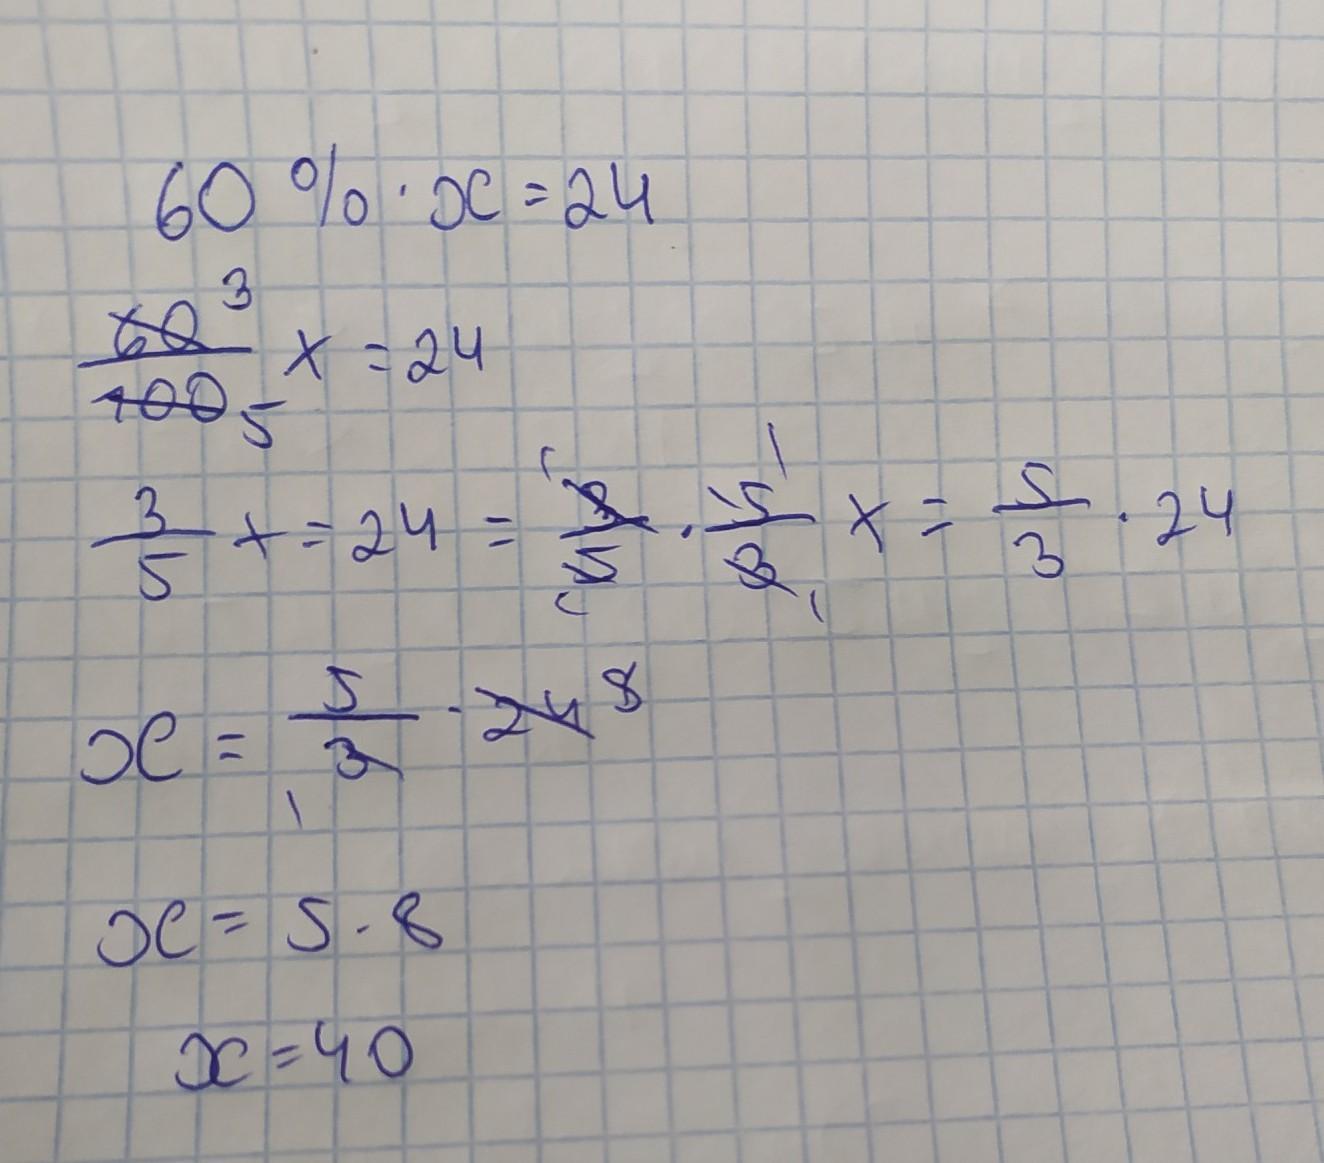 60 % · x = 24
60/100 3/5 x = 24
3/5 x = 24 = 3/5 · 5/3 x = 5/3 · 24
x = 5/3 · 24 8 1
x = 5 · 8
x = 40